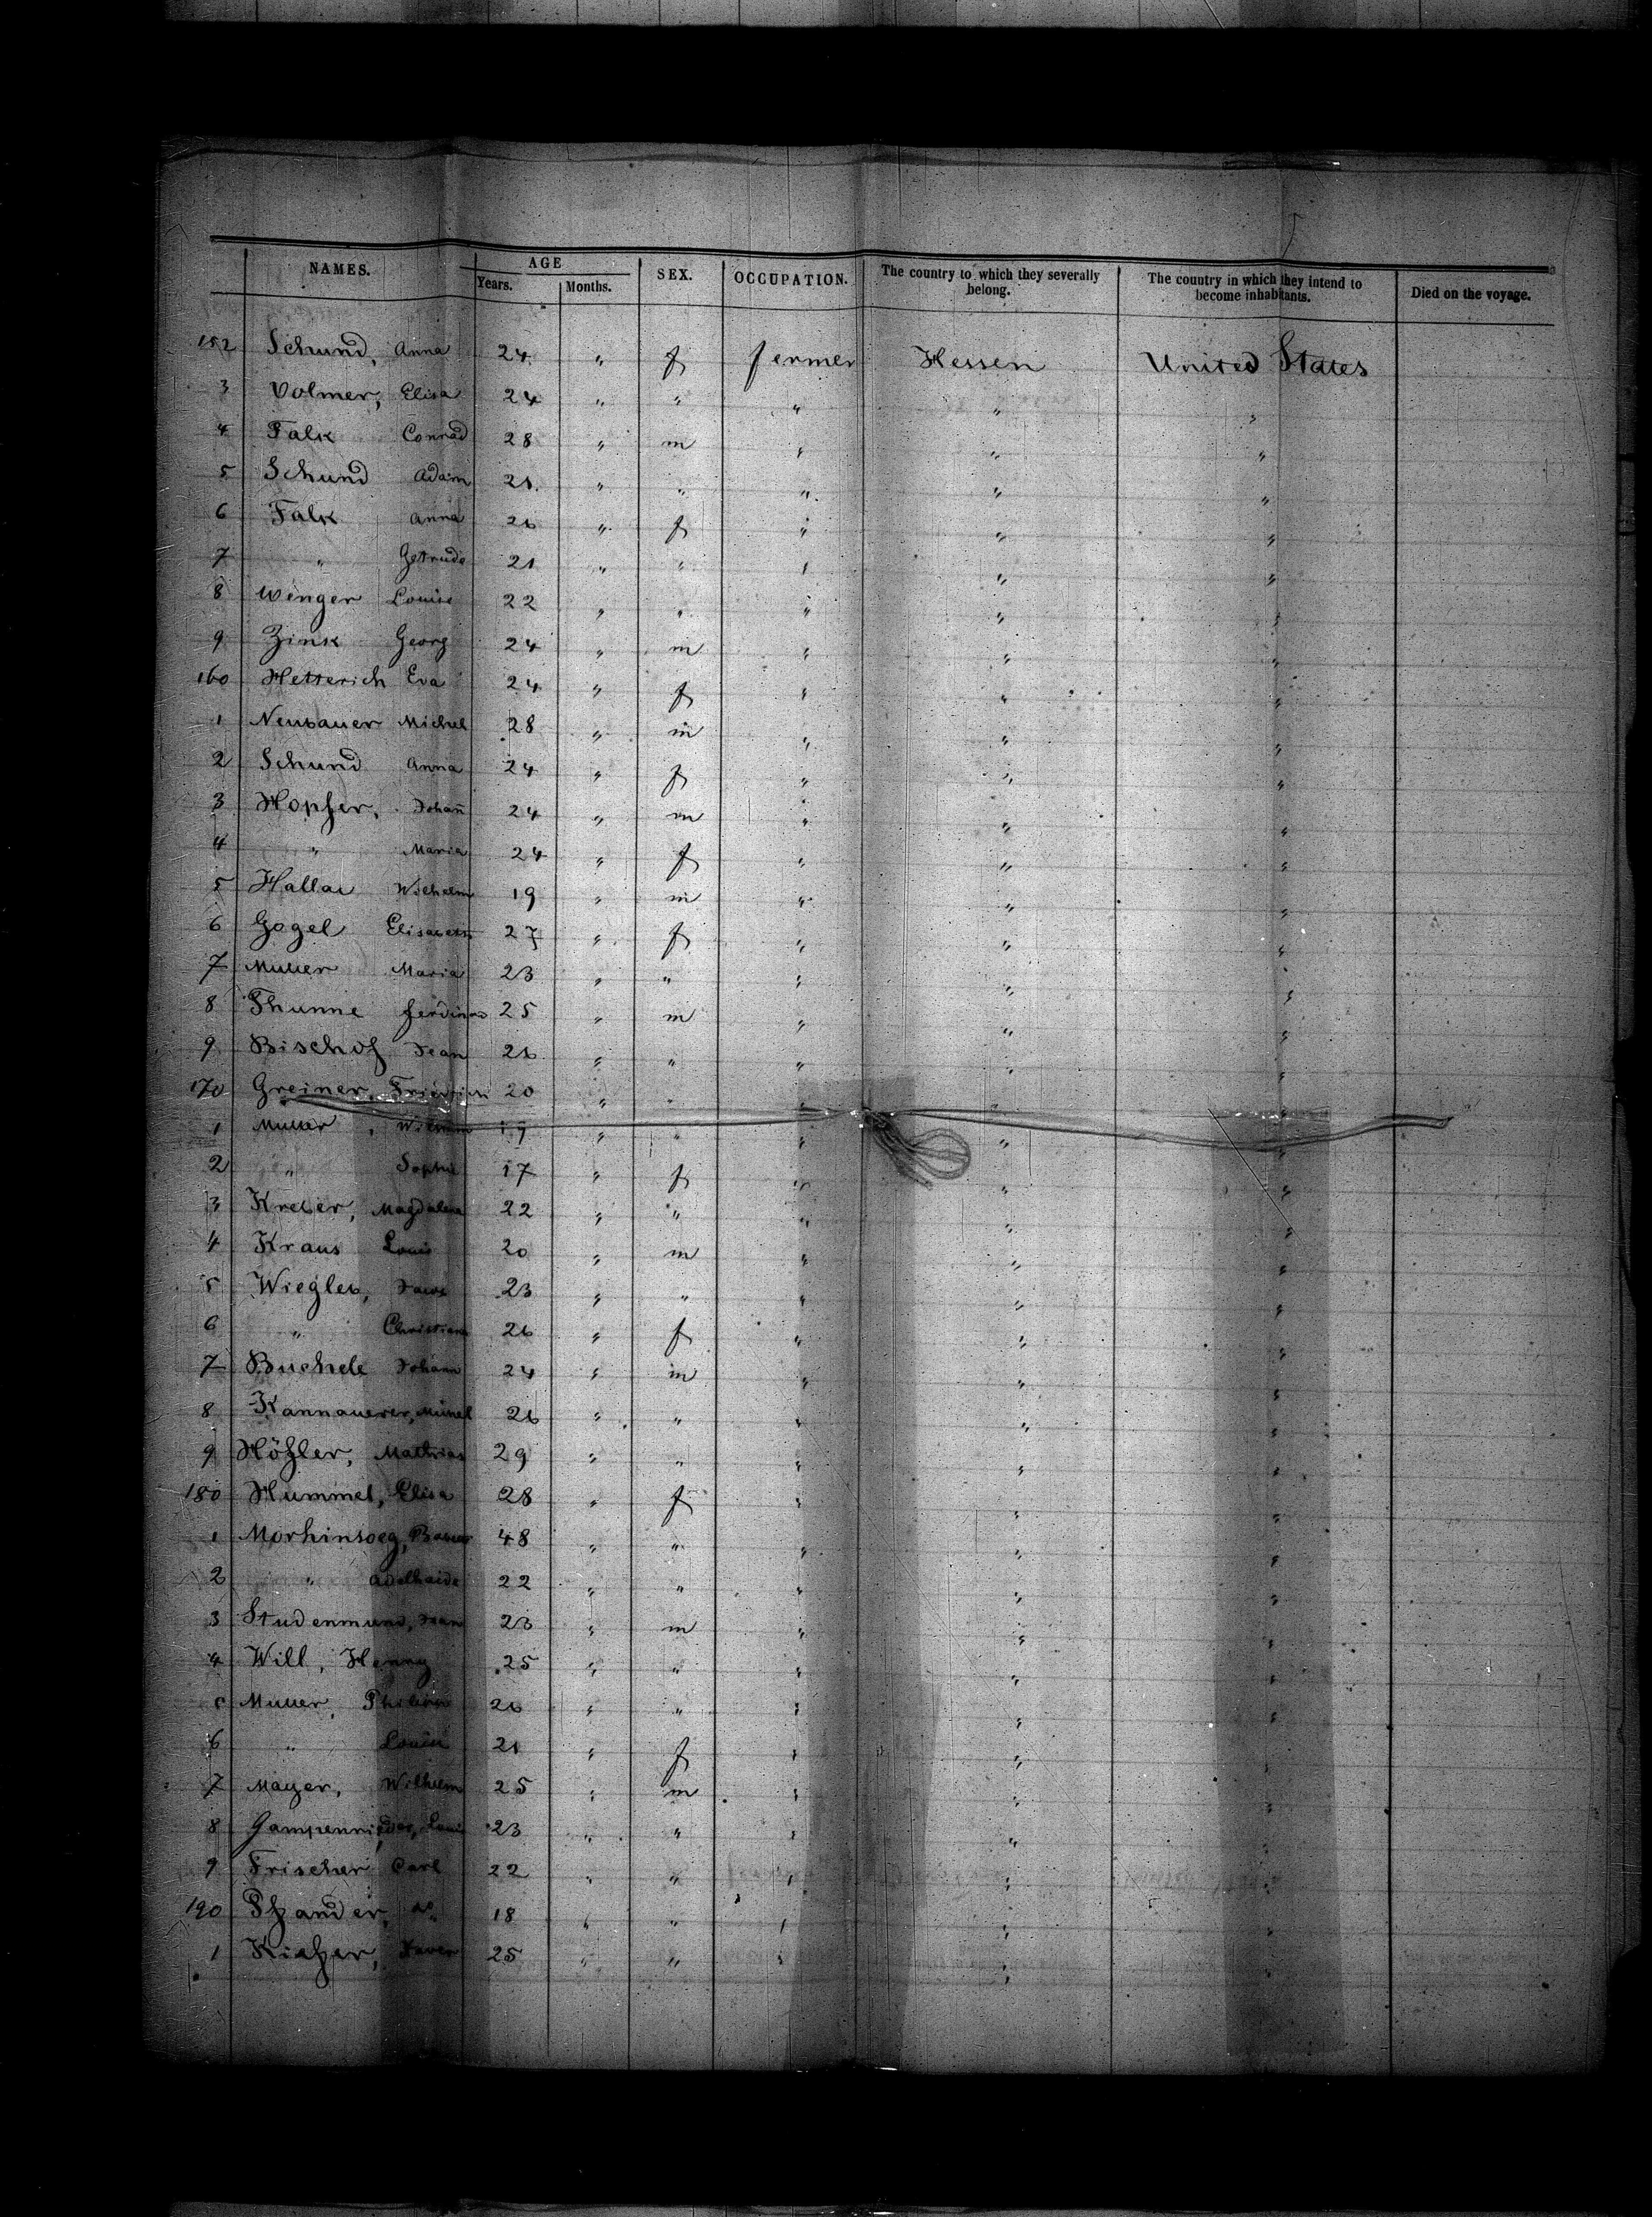 NAMES. AGE SEX. OCCUPATION. The country to which they severally belong. The country in which they intend to become inhabitants. Died on the voyage.
Years. Months.
152 Schund, Anna 24 " f fermer Hessen United States
3 Volmer, Elisa 24 " " " " "
4 Falk Conrad 28 " m " " "
5 Schund Adam 21 " " " " "
6 Falk Anna 26 " f " " "
7 " Gertrude 21 " " " " "
8 Wenger Louise 22 " " " " "
9 Zink Georg 24 " m " " "
160 Hetterich Eva 24 " f " " "
1 Neubauer Michel 28 " m " " "
2 Schund Anna 24 " f " " "
3 Hopfer, Johan̄ 24 " m " " "
4 " Maria 24 " f " " "
5 Hallar Wilhelm 19 " m " " "
6 Gogel Elisabeth 27 " f " " "
7 Muller Maria 23 " " " " "
8 Thunne Ferdinand 25 " m " " "
9 Bischof Jean 26 " " " " "
170 Greiner, Friedrich 20 " " " " "
1 Muller, " " " " "
2 " Sophie 17 " f " " "
3 Kreber, Magdalena 22 " " " " "
4 Kraus Louis 20 " m " " "
5 Wiegleb, 23 " " " " "
6 " Christiana 26 " f " " "
7 Buchele Johann 24 " m " " "
8 Kannauerer, Michel 26 " " " " "
9 Höfler, Mathias 29 " " " " "
180 Hummel, Elisa 28 " f " " "
1 Morhinsoeg, 48 " " " " "
2 " Adelhaide 22 " " " " "
3 Studenmund, Jean 23 " m " " "
4 Will, Henny 25 " " " " "
5 Muller, Philipp 26 " " " " "
6 " Louise 21 " f " " "
7 Mayer, Wilhelm 25 " m " " "
8 Louis 23 " " " " "
9 Frischer Carl 22 " " " " "
190 Pfander, do 18 " " " " "
1 Xaver 25 " " " " "